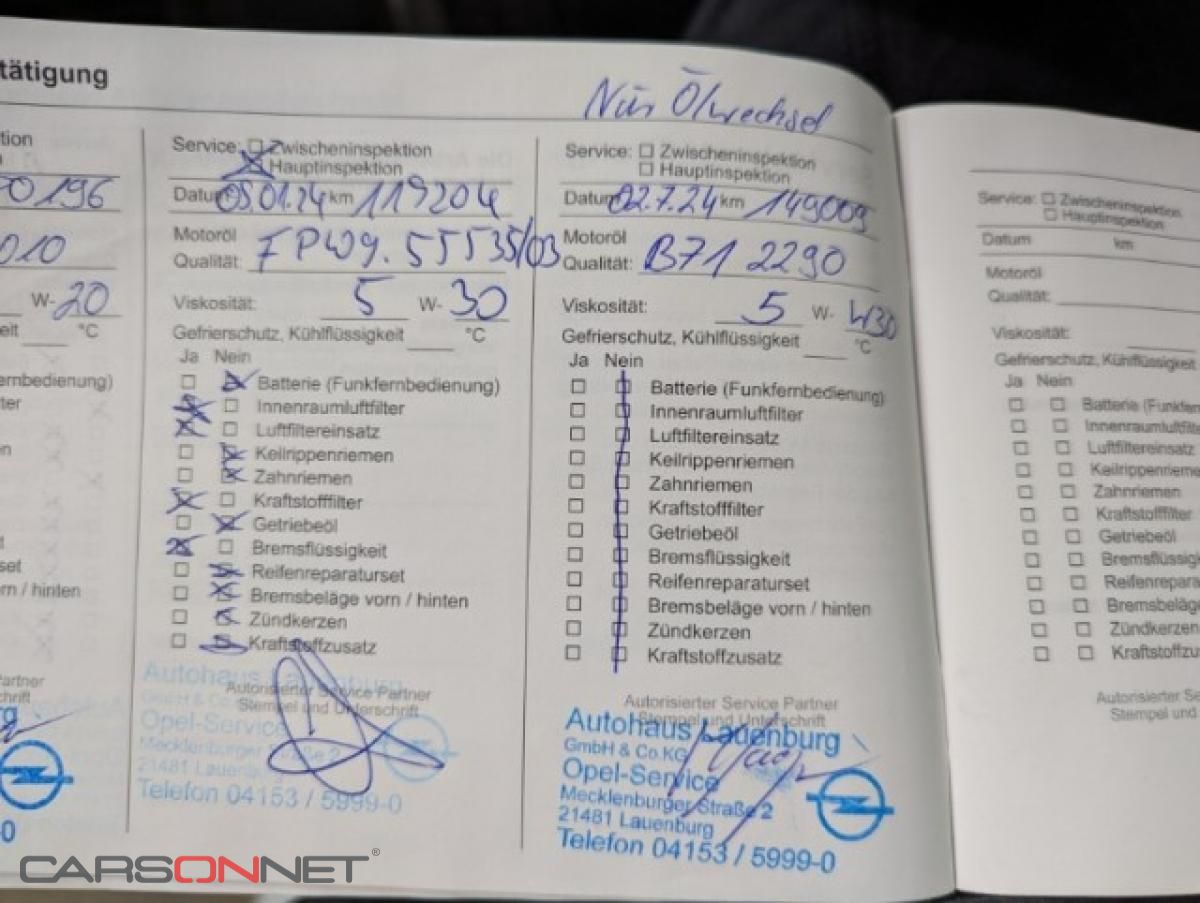 tätigung
tion
00196
010
W- 20
eit °C
ernbedienung)
ter
en
t
set
rn / hinten
artner
hrift
rg
-0
Service: Zwischeninspektion
Hauptinspektion
Datum 05.01.24 km 119204
Motoröl
Qualität: FPW9.55535/03
Viskosität: 5 W- 30
Gefrierschutz, Kühlflüssigkeit °C
Ja Nein
Batterie (Funkfernbedienung)
Innenraumluftfilter
Luftfiltereinsatz
Keilrippenriemen
Zahnriemen
Kraftstofffilter
Getriebeöl
Bremsflüssigkeit
Reifenreparaturset
Bremsbeläge vorn / hinten
Zündkerzen
Kraftstoffzusatz
Autorisierter Service Partner
Stempel und Unterschrift
Autohaus Lauenburg
GmbH & Co.KG
Opel-Service
Mecklenburger Straße 2
21481 Lauenburg
Telefon 04153 / 5999-0
Nur Ölwechsel
Service: Zwischeninspektion
Hauptinspektion
Datum 02.7.24 km 149009
Motoröl
Qualität: B71 2290
Viskosität: 5 W- W30
Gefrierschutz, Kühlflüssigkeit °C
Ja Nein
Batterie (Funkfernbedienung)
Innenraumluftfilter
Luftfiltereinsatz
Keilrippenriemen
Zahnriemen
Kraftstofffilter
Getriebeöl
Bremsflüssigkeit
Reifenreparaturset
Bremsbeläge vorn / hinten
Zündkerzen
Kraftstoffzusatz
Autorisierter Service Partner
Stempel und Unterschrift
Autohaus Lauenburg
GmbH & Co.KG
Opel-Service
Mecklenburger Straße 2
21481 Lauenburg
Telefon 04153 / 5999-0
Service: Zwischeninspektion
Hauptinspektion
Datum km
Motoröl
Qualität:
Viskosität:
Gefrierschutz, Kühlflüssigkeit
Ja Nein
Batterie (Funkfer
Innenraumluftfilte
Luftfiltereinsatz
Keilrippenrieme
Zahnriemen
Kraftstofffilter
Getriebeöl
Bremsflüssig
Reifenrepara
Bremsbeläge
Zündkerzen
Kraftstoffzu
Autorisierter Se
Stempel und
CARSONNET®